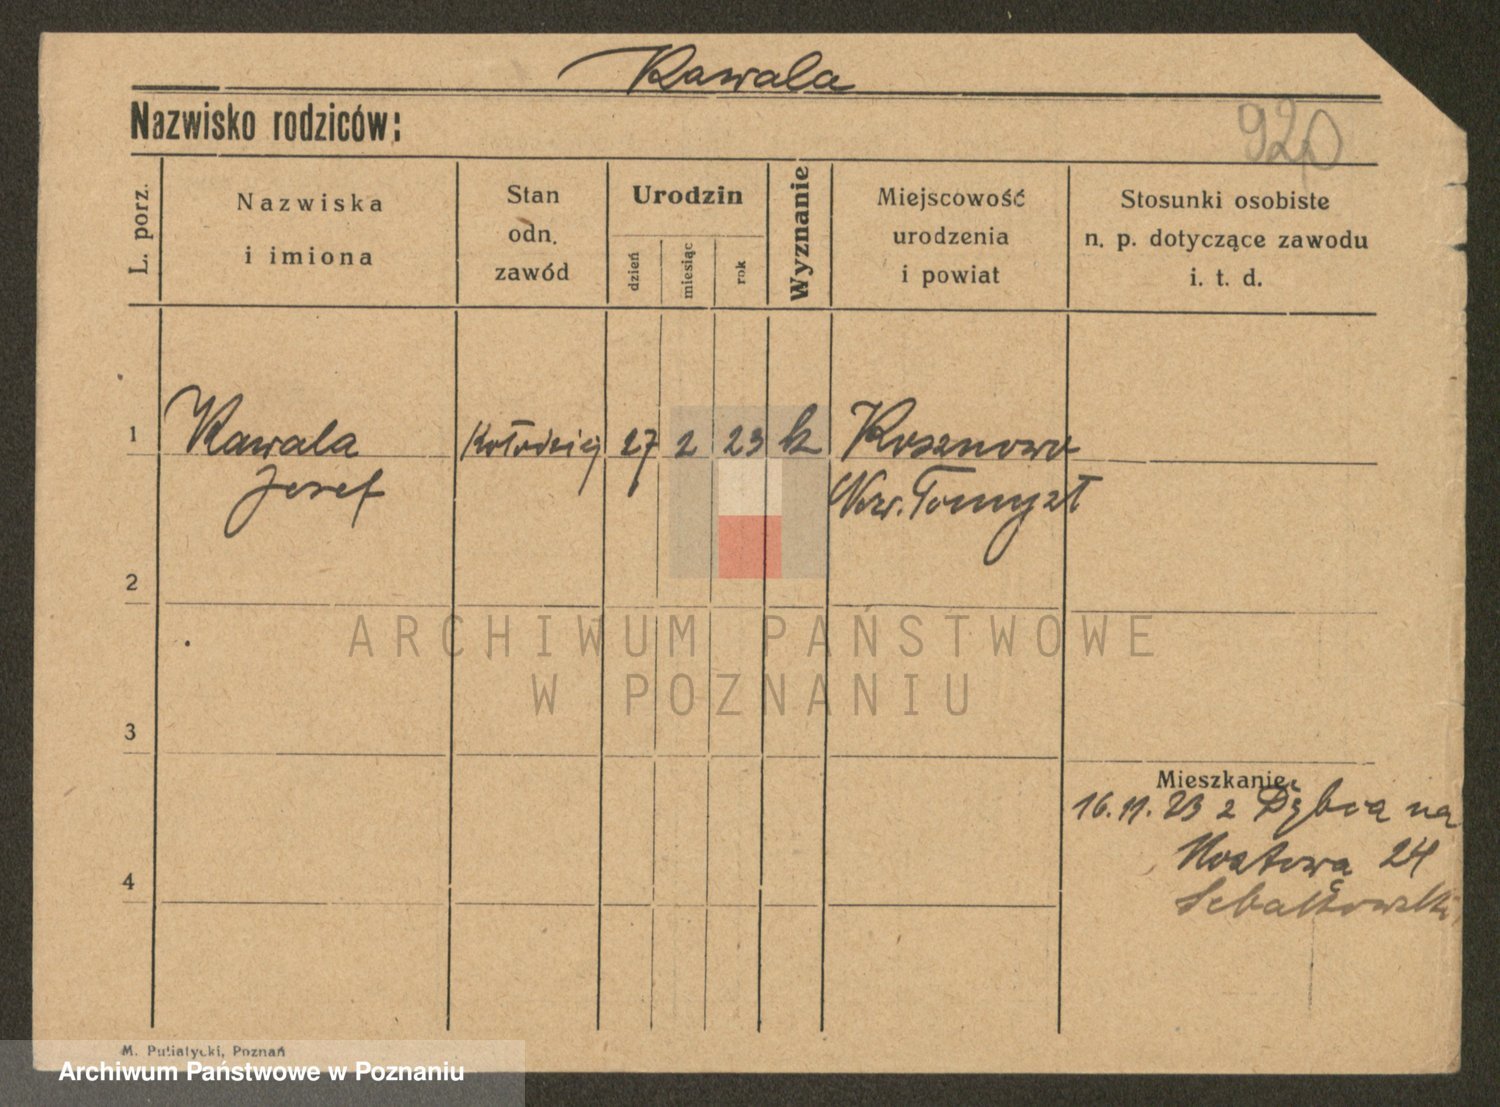 Kawala
Nazwisko rodziców:
920
L. porz.
Nazwiska
i imiona
Stan
odn.
zawód
Urodzin
dzień
miesiąc
rok
Wyznanie
Miejscowość
urodzenia
i powiat
Stosunki osobiste
n. p. dotyczące zawodu
i. t. d.
1
Kawala
Józef
Kołodziej
27
2
23
k
Nw. Tomyśl
2
ARCHIWUM PAŃSTWOWE
W POZNANIU
3
Mieszkanie
16.11.23 z Dębca na
24
4
M. Putiatycki, Poznań
Archiwum Państwowe w Poznaniu